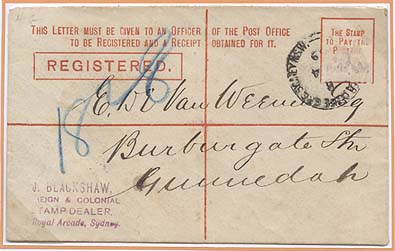 THIS LETTER MUST BE GIVEN TO AN OFFICER OF THE POST OFFICE
TO BE REGISTERED AND A RECEIPT OBTAINED FOR IT.
THE STAMP
TO PAY THE
REGISTERED.
E. D. C. Van Weenen Esq
Burburgate Stn
Gunnedah
J. BLACKSHAW,
REIGN & COLONIAL
TAMP DEALER,
Royal Arcade, Sydney.